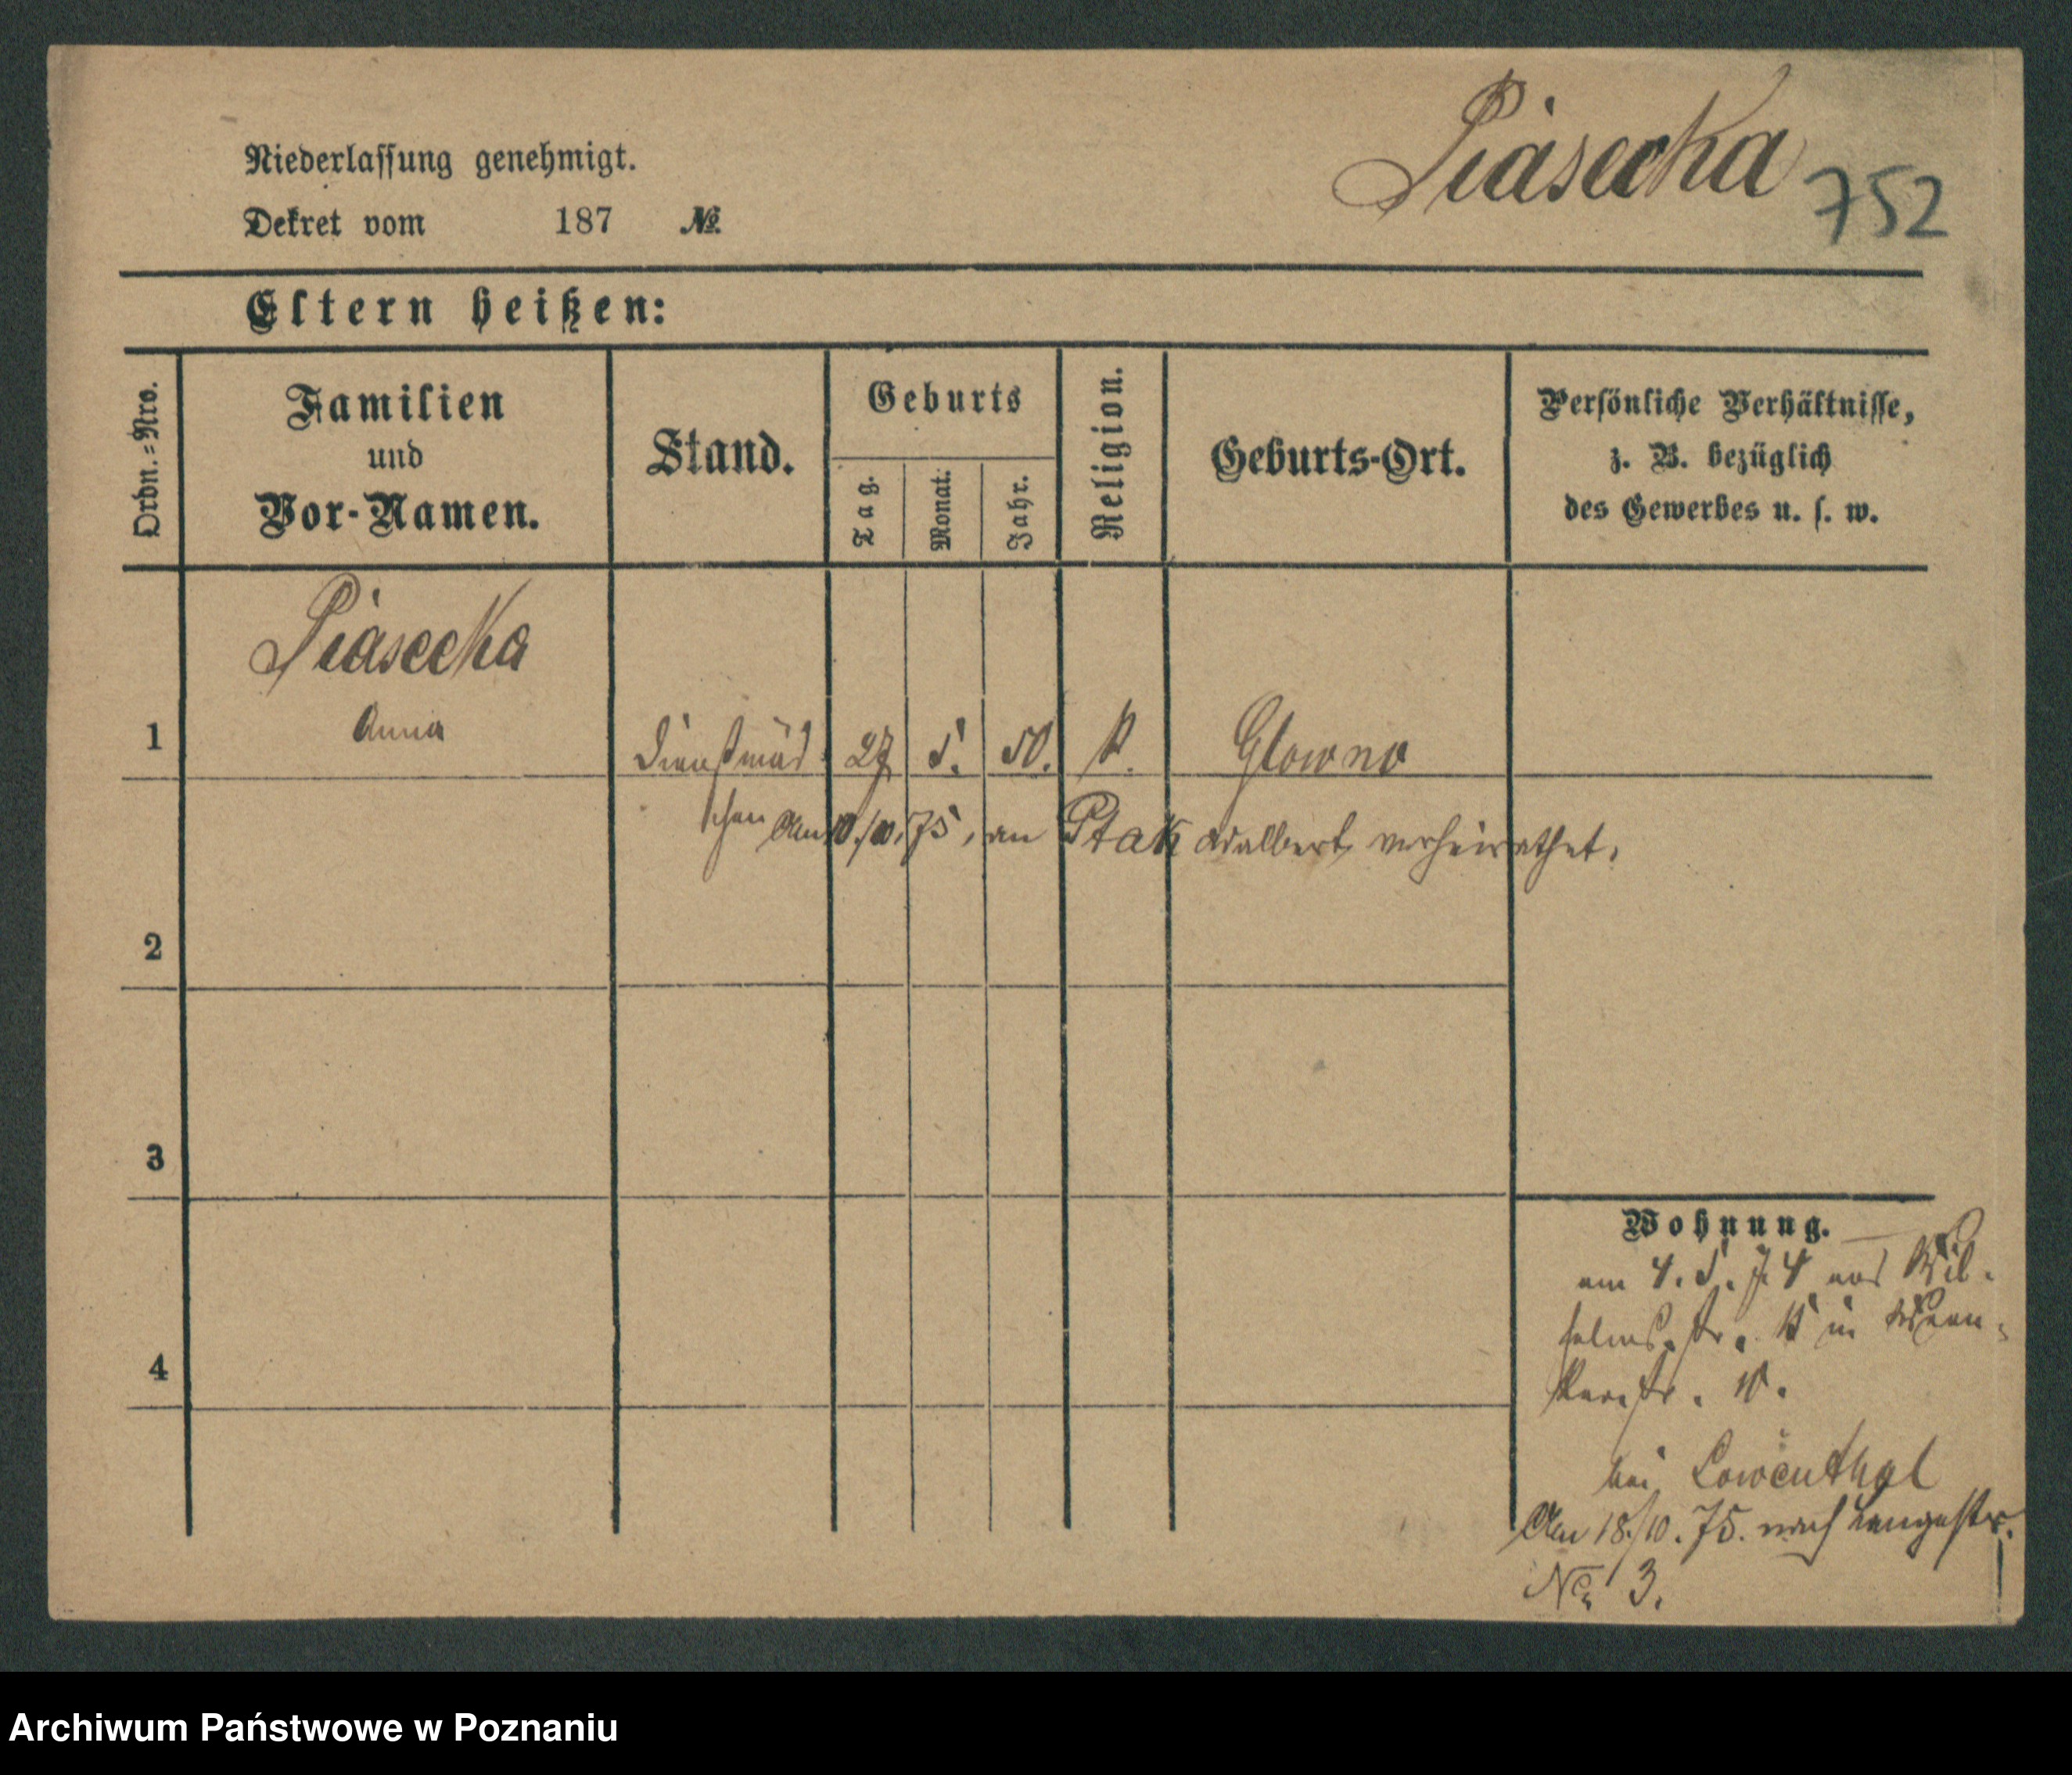 Piasecka 752
Niederlassung genehmigt.
Dekret vom 187 №
Eltern heißen:
Ordn.-Nro.
Familien
und
Vor-Namen.
Stand.
Geburts
Tag.
Monat.
Jahr.
Religion.
Geburts-Ort.
Persönliche Verhältnisse,
z. B. bezüglich
des Gewerbes u. s. w.
Piasecka
1 Anna Dienstmäd- 27 5. 50. k. Glowno
chen Am 10./10. 75, an Ptak Adalbert verheirathet.
2
3
4
Wohnung.
am 4. 5. 74 von Wil-
helmsstr. in
str. 10.
bei Löwenthal
Am 18./10. 75. nach Langestr.
No. 3.
Archiwum Państwowe w Poznaniu